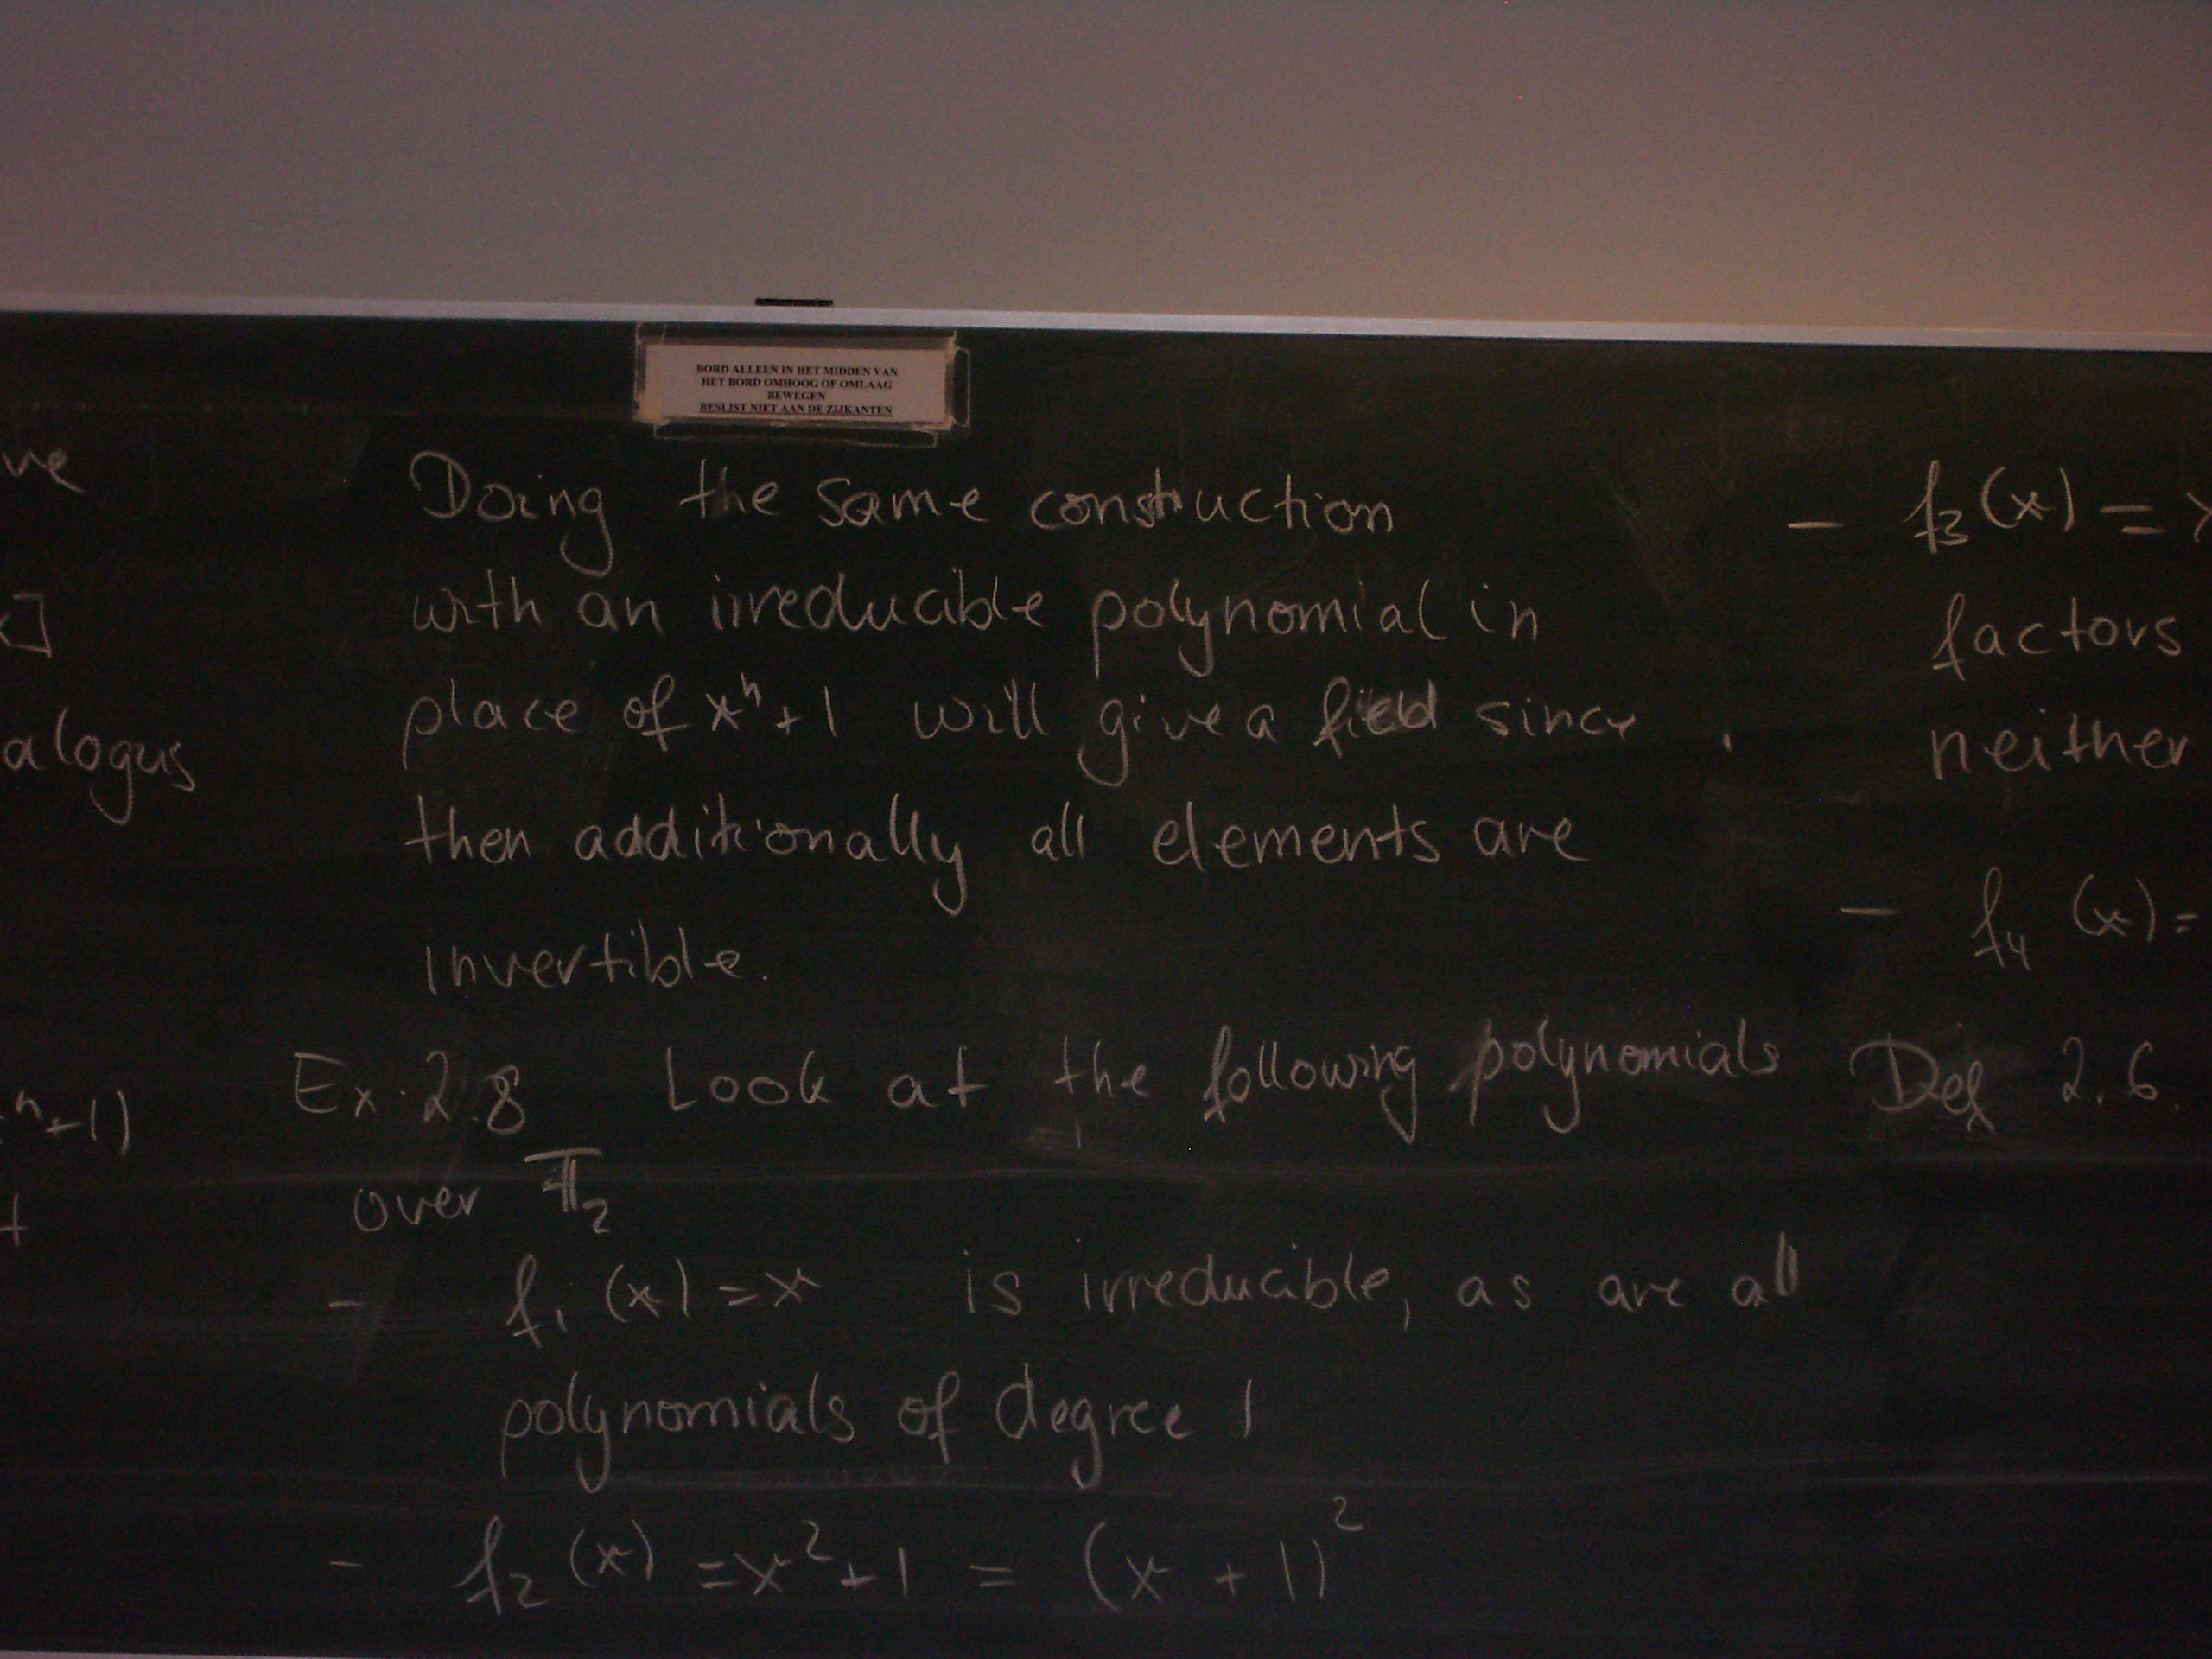 BORD ALLEEN IN HET MIDDEN VAN
HET BORD OMHOOG OF OMLAAG
BEWEGEN
BESLIST NIET AAN DE ZIJKANTEN
ve
x]
alogus
n+1)
Doing the same construction
with an irreducible polynomial in
place of xⁿ+1 will give a field since
then additionally all elements are
invertible.
Ex. 2.8 Look at the following polynomials
over 𝔽₂
- f₁(x) = x is irreducible, as are all
polynomials of degree 1
- f₂(x) = x²+1 = (x+1)²
- f₃(x) =
factors
neither
- f₄(x) =
Def 2.6.